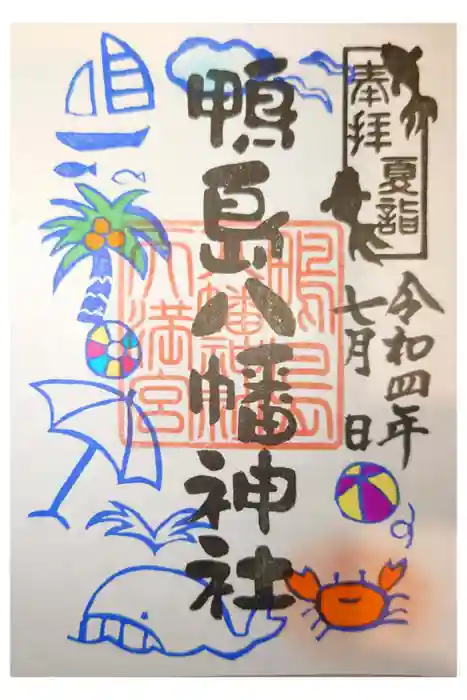 奉拝
夏詣
令和四年
七月 日
鴨島八幡神社
鴨島
八幡神社
天満宮